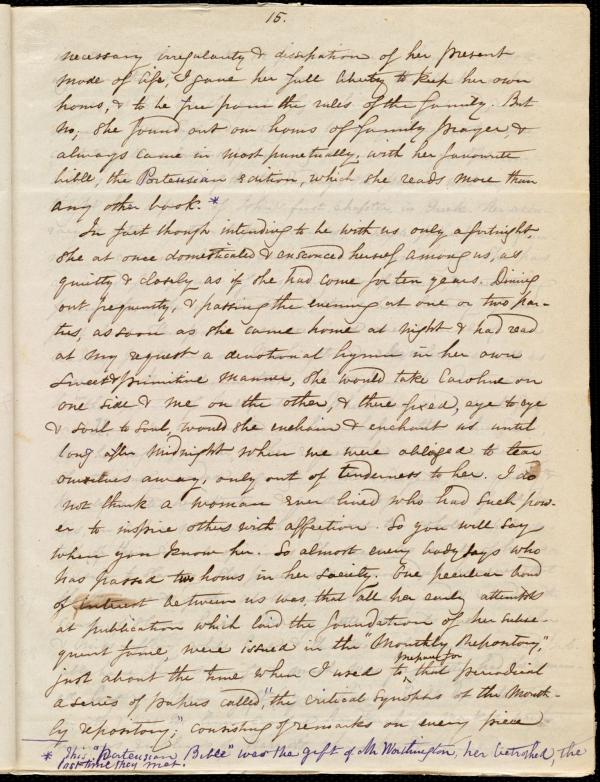 15.
necessary irregularity & dissipation of her present
mode of life, I gave her full liberty to keep her own
hours, & to be free from the rules of the family. But
no, she found out our hours of family prayer &
always came in most punctually, with her favourite
bible, the Porteusian edition, which she reads more than
any other book. *
In fact though intending to be with us only a fortnight,
she at once domesticated & ensconced herself among us, as
quietly & closely as if she had come for ten years. Dining
out frequently, & passing the evening at one or two par-
ties, as soon as she came home at night & had read
at my request a devotional hymn in her own
sweet & primitive manner, she would take Caroline on
one side & me on the other, & there fixed, eye to eye
& soul to soul, would she enchain & enchant us until
long after midnight when we were obliged to tear
ourselves away, only out of tenderness to her. I do
not think a woman ever lived who had such pow-
er to inspire others with affection. So you will say
when you know her. So almost every body says who
has passed two hours in her society. One peculiar bond
of interest between us was, that all her early attempts
at publication which laid the foundation of her subse-
quent fame, were issued in the "Monthly Repository",
just about the time when I used to prepare for that periodical
a series of papers called, "the critical synopsis of the Month-
ly repository", consisting of remarks on every piece
* This "Porteusian Bible" was the gift of Mr Worthington, her betrothed, the
last time they met.